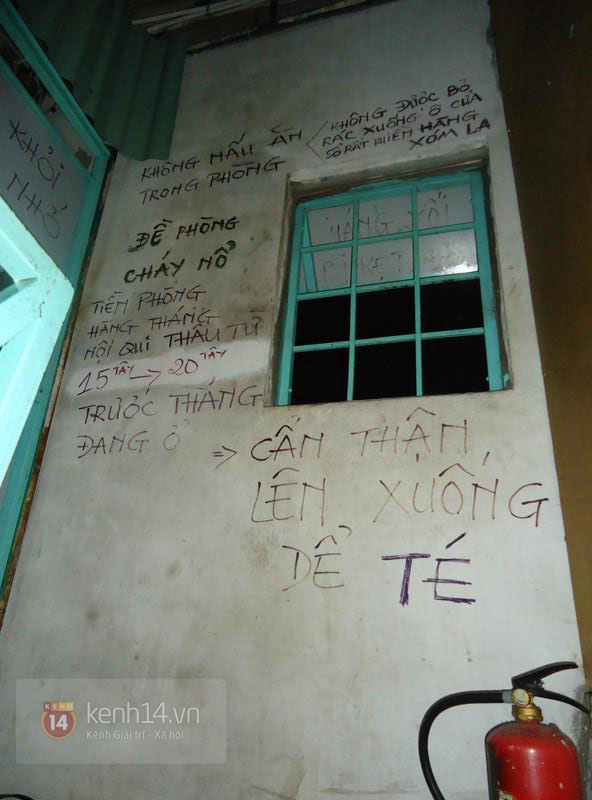 KHÔNG ĐƯỢC BỎ
RÁC XUỐNG Ô CỬA
SỔ RẤT PHIỀN HÀNG
XÓM LA
KHÔNG NẤU ĂN
TRONG PHÒNG
KHỎI
NHỚ
ĐỀ PHÒNG
CHÁY NỔ
TIỀN PHÒNG
HÀNG THÁNG
NỘI QUI THÂU TỪ
15 TÂY → 20 TÂY
TRƯỚC THÁNG
ĐANG Ở
⇒ CẨN THẬN
LÊN XUỐNG
DỂ TÉ
KENH
14
kenh14.vn
Kênh Giải trí - Xã hội